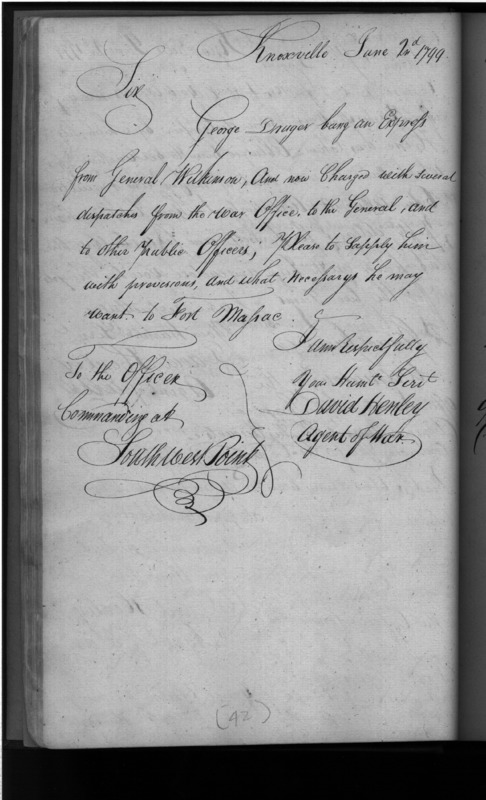 Knoxville June 2nd 1799
Sir
George Druger bang an Express
from General Wilkinson, And now Charged with several
dispatches from the war Office, to the General, and
to other Public Officers; Please to Supply him
with provisions, and what necessarys he may
want to Fort Massac.
I am Respectfully
Your Humle Servt
David Henley
Agent of War
To the Officer
Commanding at
South West Point
(42)